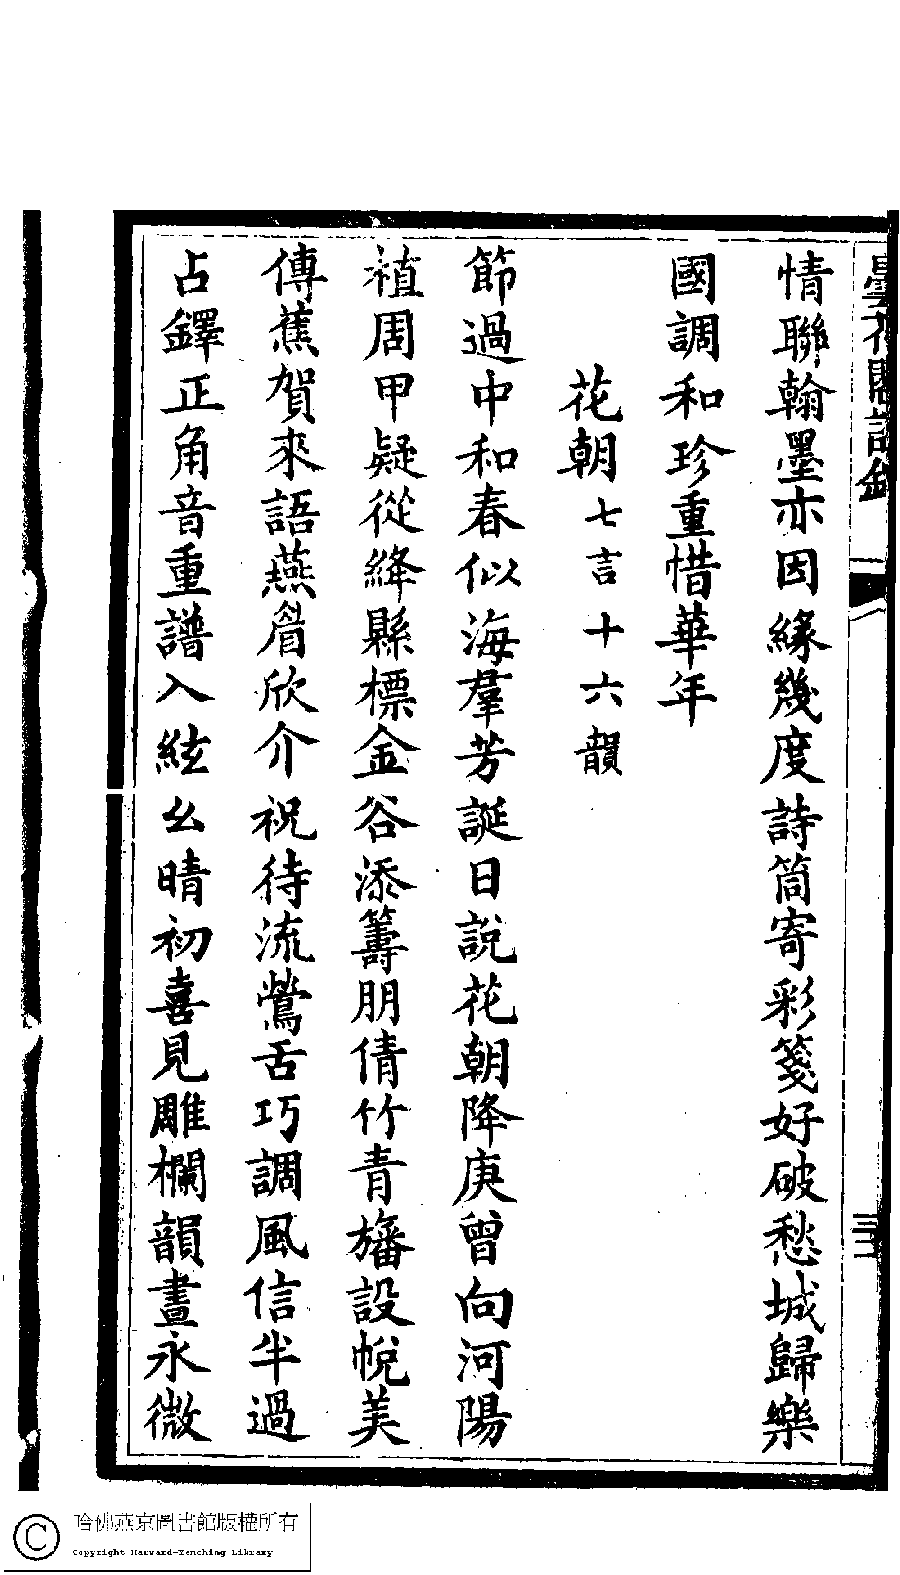 曇花閣詩鈔
三
情聯翰墨亦因緣幾度詩筒寄彩箋好破愁城歸樂
國調和珍重惜華年
花朝七言十六韻
節過中和春似海羣芳誕日說花朝降庚曾向河陽
植周甲疑從絳縣標金谷添籌朋倩竹青旛設帨美
傳蕉賀來語燕眉欣介祝待流鶯舌巧調風信半過
占鐸正角音重譜入絃幺晴初喜見雕欄韻晝永微
哈佛燕京圖書館版權所有
Copyright Harvard-Yenching Library